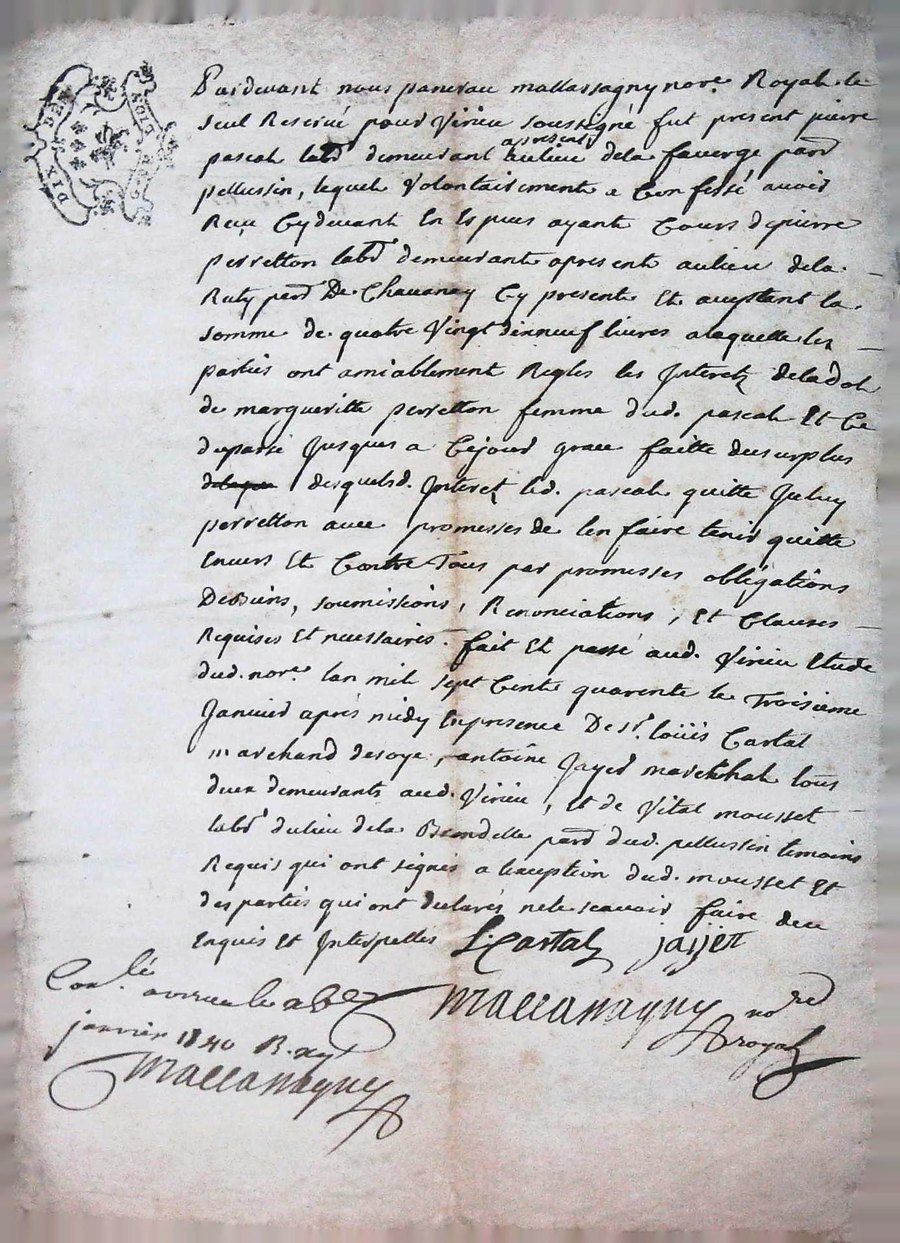 DIX DEN
GEN DE LION
Pardevant nous pancrau mallassagny nore. Royal le
seul Reservé pour Virieu soussigné fut present pierre
pascal labr demeurant apresent aulieu dela faverge parr
pellussin, lequel Volontairement a Confessé avoir
Reçu Cydevant En Especes ayant Cours de pierre
perretton labr demeurant apresent aulieu dela
Ruty parr De Chavanay Cy present Et aceptant la
somme de quatre Vingt dixneuf livres alaquelle les
parties ont amiablement Regles les Interetz deladot
de margueritte perretton femme dud. pascal Et Ce
dupassé Jusques a Cejourd grace faitte dusurplus
desquelsd. Interetz led. pascal quitte Jceluy
perretton avec promesses de len faire tenir quitte
Envers Et Contre Tous par promesses obligations
De Biens, soumissions, Renonciations, Et Clauses
Requises Et necessaires. fait Et passé aud. Virieu Etude
dud. nore. lan mil sept Cent quarente le Troisieme
Janvier après midy Enpresence De Sr. loüis Cartal
marchand desoye, antoine Jayet marechal tous
deux demeurants aud. Virieu, Et de Vital mousset
labr dulieu dela parr dud. pellussin temoins
Requis qui ont signés a lexception dud. mousset Et
des parties qui ont declarés ne le scavoir faire deu
Enquis Et Interpelles L. Cartal jaijet
Conlé. a virieu le
mallassagny nore
janvier 1740 R.
royal
mallassagny